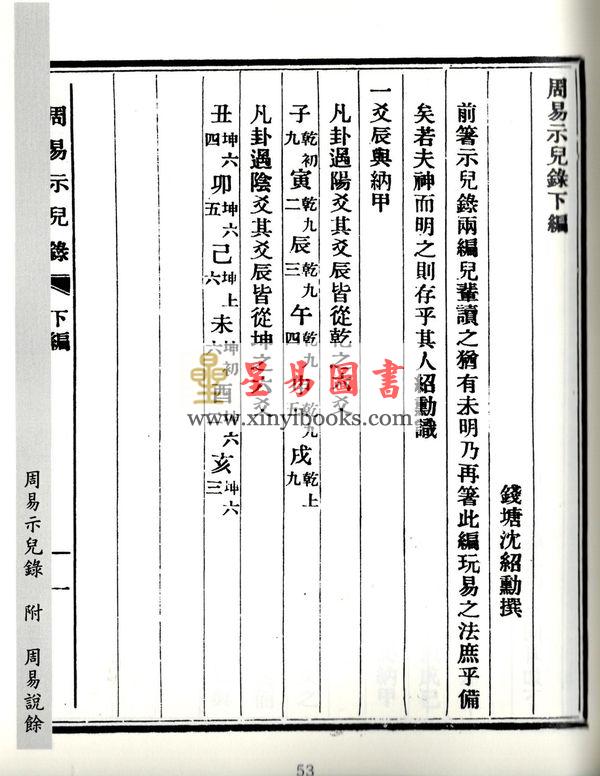 周易示兒錄下編
錢塘沈紹勳撰
前箸示兒錄兩編兒輩讀之猶有未明乃再箸此編玩易之法庶乎備
矣若夫神而明之則存乎其人紹勳識
一爻辰與納甲
凡卦遇陽爻其爻辰皆從乾之六爻
子乾初九寅乾九二辰乾九三午乾九四申乾九五戌乾上九
凡卦遇陰爻其爻辰皆從坤之六爻
丑坤六四卯坤六五己坤上六未坤初六酉坤六亥坤六三
周易示兒錄 下編 一
周易示兒錄 附 周易說餘
53
星易圖書
www.xinyibooks.com